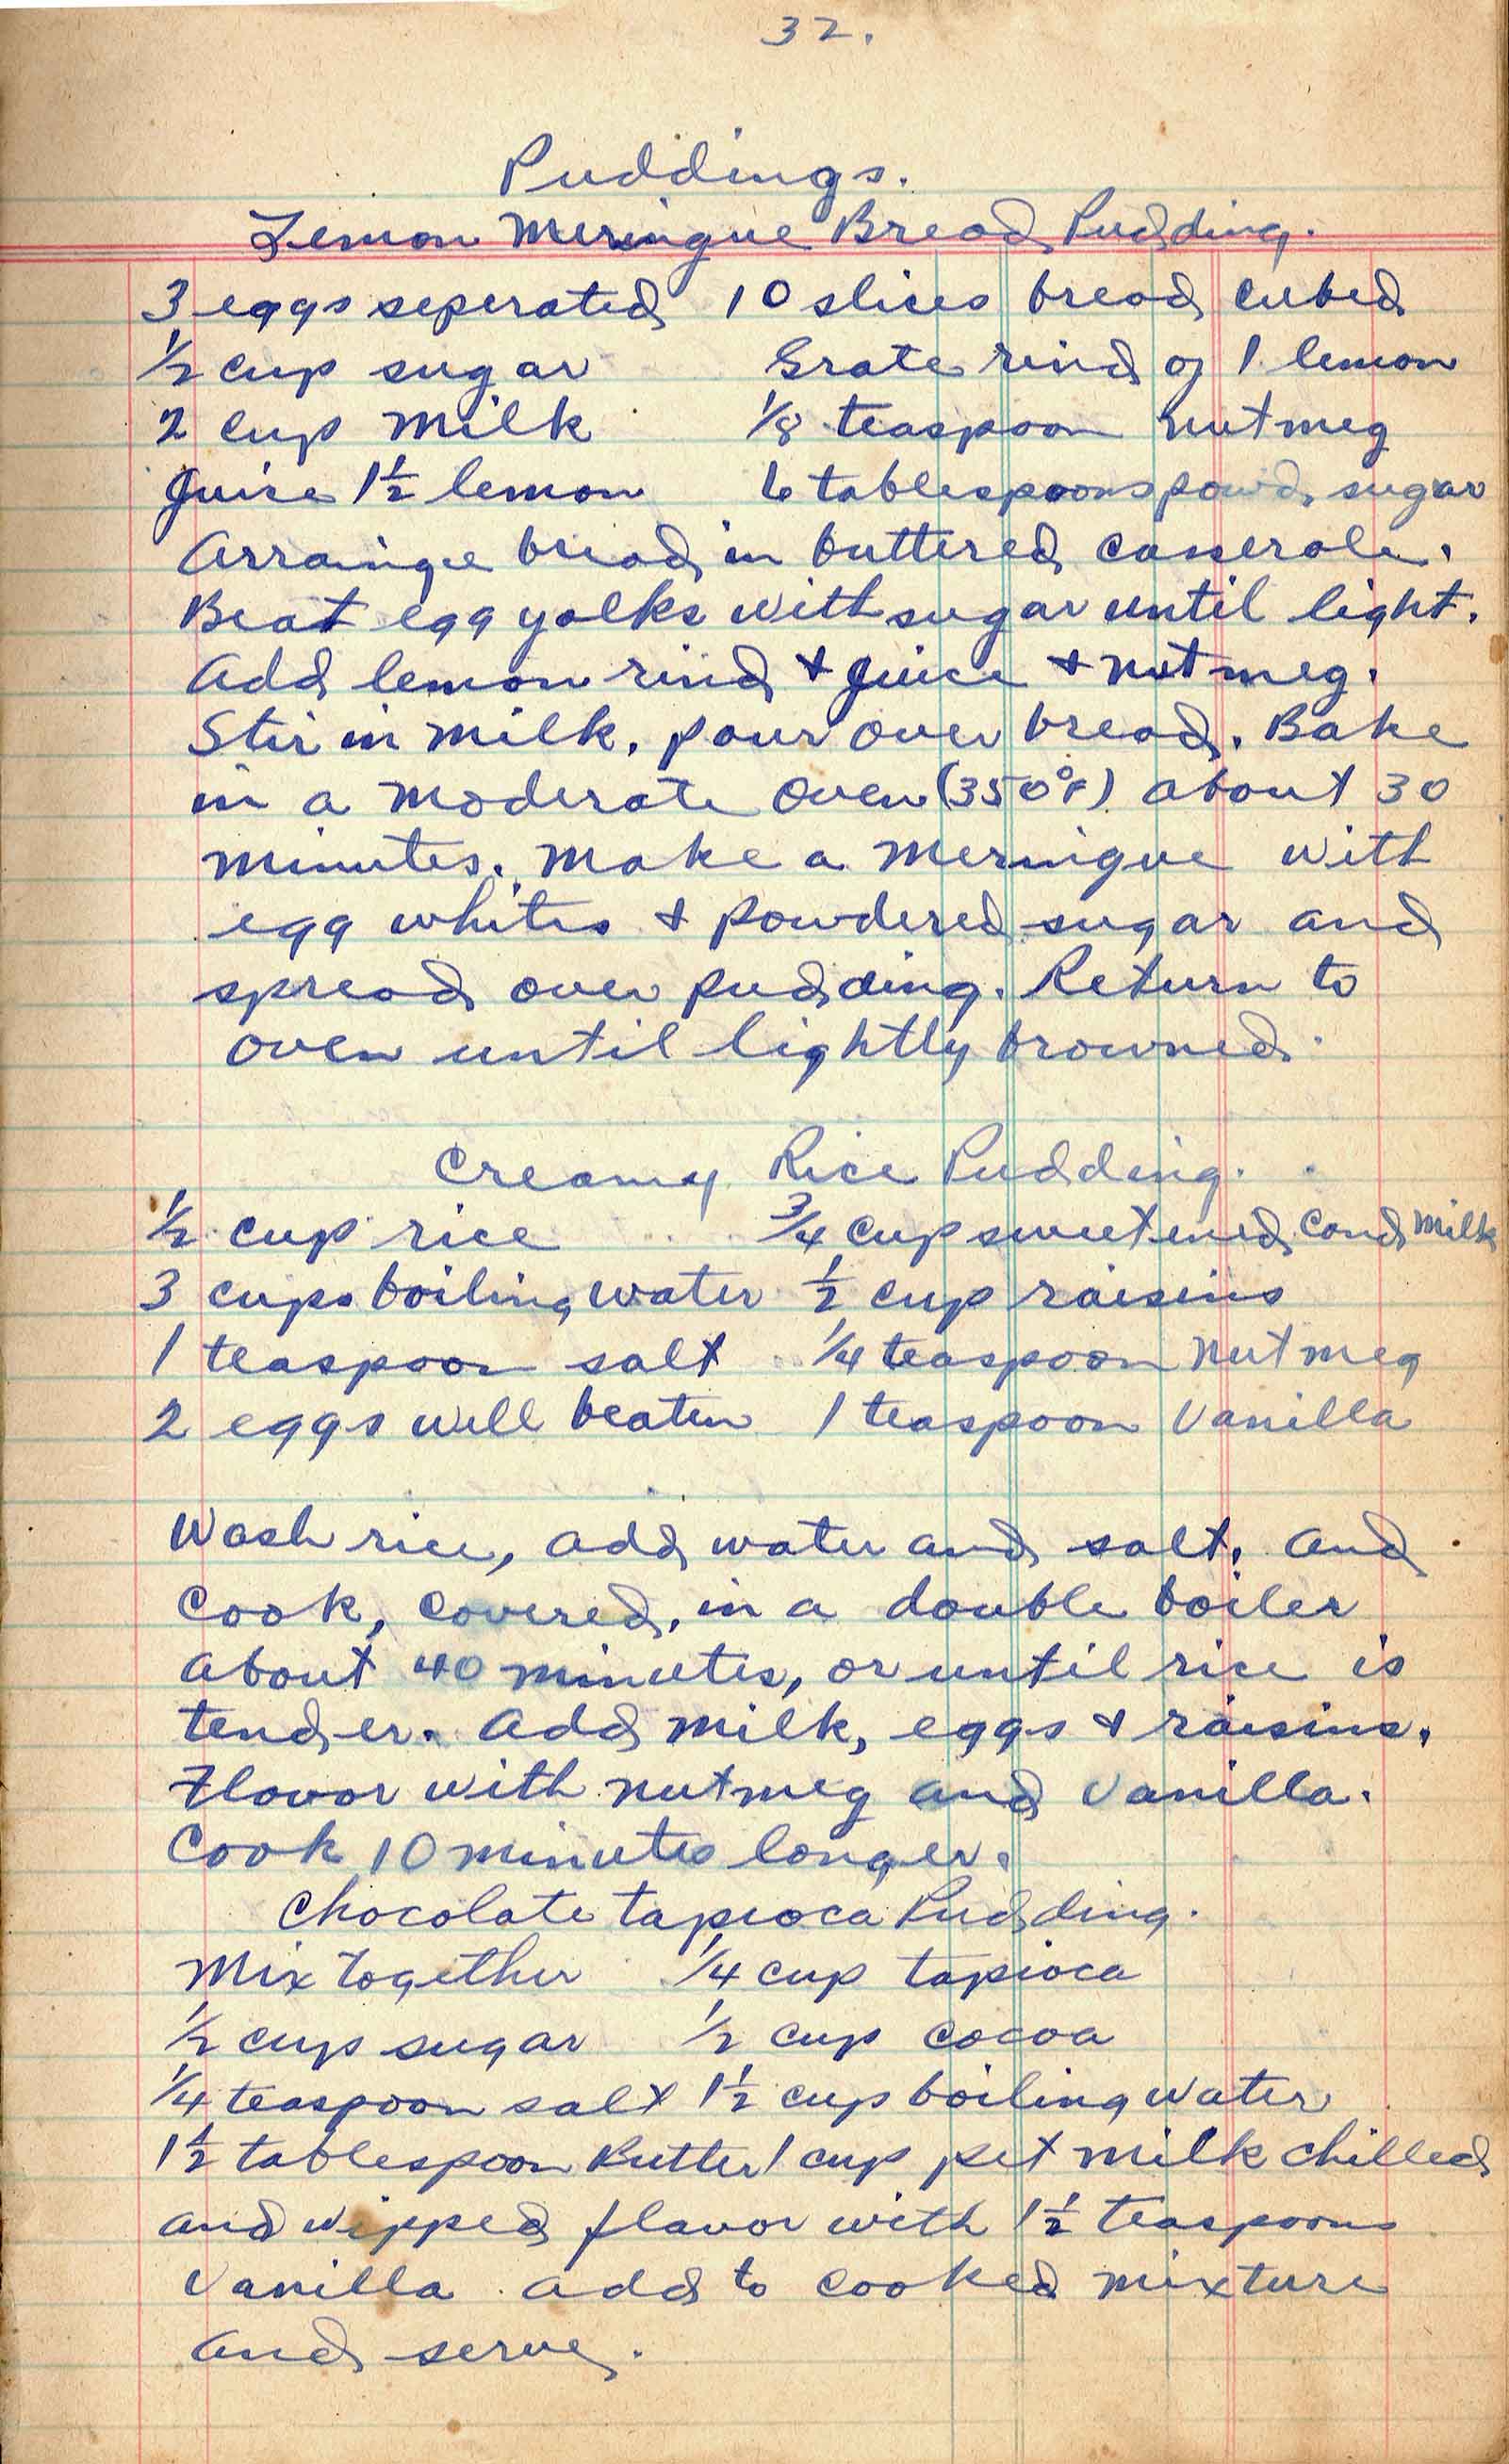 32.
Puddings.
Lemon Meringue Bread Pudding.
3 eggs seperated 10 slices bread cubed
1/2 cup sugar Grate rind of 1 lemon
2 cup milk 1/8 teaspoon nutmeg
Juice 1 1/2 lemon 6 tablespoons powd. sugar
Arrainge bread in buttered casserole.
Beat egg yolks with sugar until light.
Add lemon rind + juice + nutmeg.
Stir in milk, pour over bread. Bake
in a moderate oven (350°F) about 30
minutes. Make a meringue with
egg whites + powdered sugar and
spread over pudding. Return to
oven until lightly browned.
Creamy Rice Pudding.
1/2 cup rice 3/4 cup sweetened cond milk
3 cups boiling water 1/2 cup raisins
1 teaspoon salt 1/4 teaspoon nutmeg
2 eggs well beaten 1 teaspoon Vanilla
Wash rice, add water and salt, and
cook, covered, in a double boiler
about 40 minutes, or until rice is
tender. Add milk, eggs + raisins.
Flavor with nutmeg and Vanilla.
Cook 10 minutes longer.
Chocolate tapioca Pudding.
Mix together 1/4 cup tapioca
1/2 cup sugar 1/2 cup cocoa
1/4 teaspoon salt 1 1/2 cup boiling water
1 1/2 tablespoon Butter 1 cup pet milk chilled
and wipped flavor with 1 1/2 teaspoons
Vanilla add to cooked mixture
and serve.